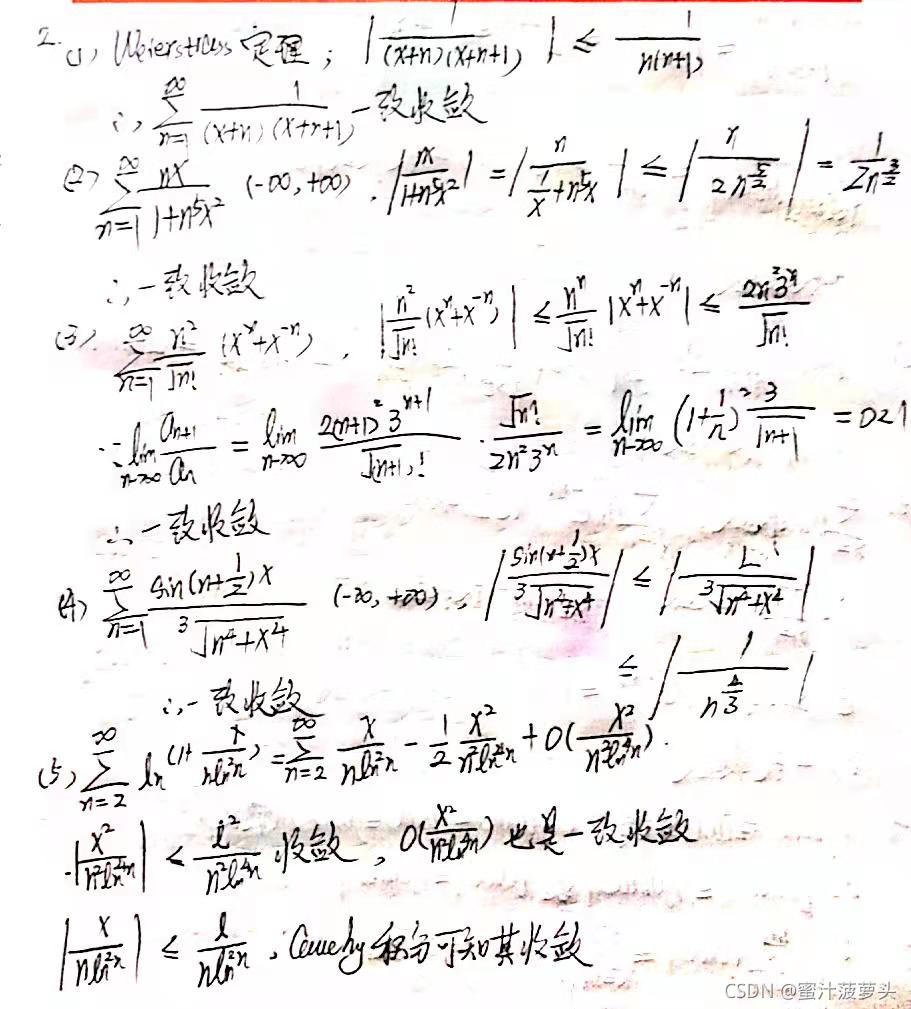 2. (1) Weierstrass 定理; |1/((x+n)(x+n+1))| ≤ 1/(n(n+1)) =
∴ ∑_{n=1}^{∞} 1/((x+n)(x+n+1)) 一致收敛
(2) ∑_{n=1}^{∞} nx/(1+n⁵x²) (-∞, +∞). |nx/(1+n⁵x²)| = |n/(1/x+n⁵x)| ≤ |n/(2n^{5/2})| = 1/(2n^{3/2})
∴ 一致收敛
(3) ∑_{n=1}^{∞} n²/√n! (xⁿ+x⁻ⁿ), |n²/√n! (xⁿ+x⁻ⁿ)| ≤ nⁿ/√n! |xⁿ+x⁻ⁿ| ≤ 2n²3ⁿ/√n!
∵ lim_{n→∞} a_{n+1}/a_n = lim_{n→∞} 2(n+1)²3^{n+1}/√(n+1)! · √n!/(2n²3ⁿ) = lim_{n→∞} (1+1/n)² 3/√(n+1) = 0<1
∴ 一致收敛
(4) ∑_{n=1}^{∞} sin(n+1/2)x/∛(n⁴+x⁴) (-∞, +∞). |sin(n+1/2)x/∛(n⁴+x⁴)| ≤ |1/∛(n⁴+x⁴)|
≤ |1/n^{4/3}|
∴ 一致收敛
(5) ∑_{n=2}^{∞} ln(1+x/(nln²n)) = ∑_{n=2}^{∞} x/(nln²n) - 1/2 x²/(n²ln⁴n) + O(x²/(n²ln⁴n)).
|x²/(n²ln⁴n)| ≤ l²/(n²ln⁴n) 收敛, O(x²/(n²ln⁴n)) 也是一致收敛
|x/(nln²n)| ≤ l/(nln²n), Cauchy 积分可知其收敛
CSDN @蜜汁菠萝头